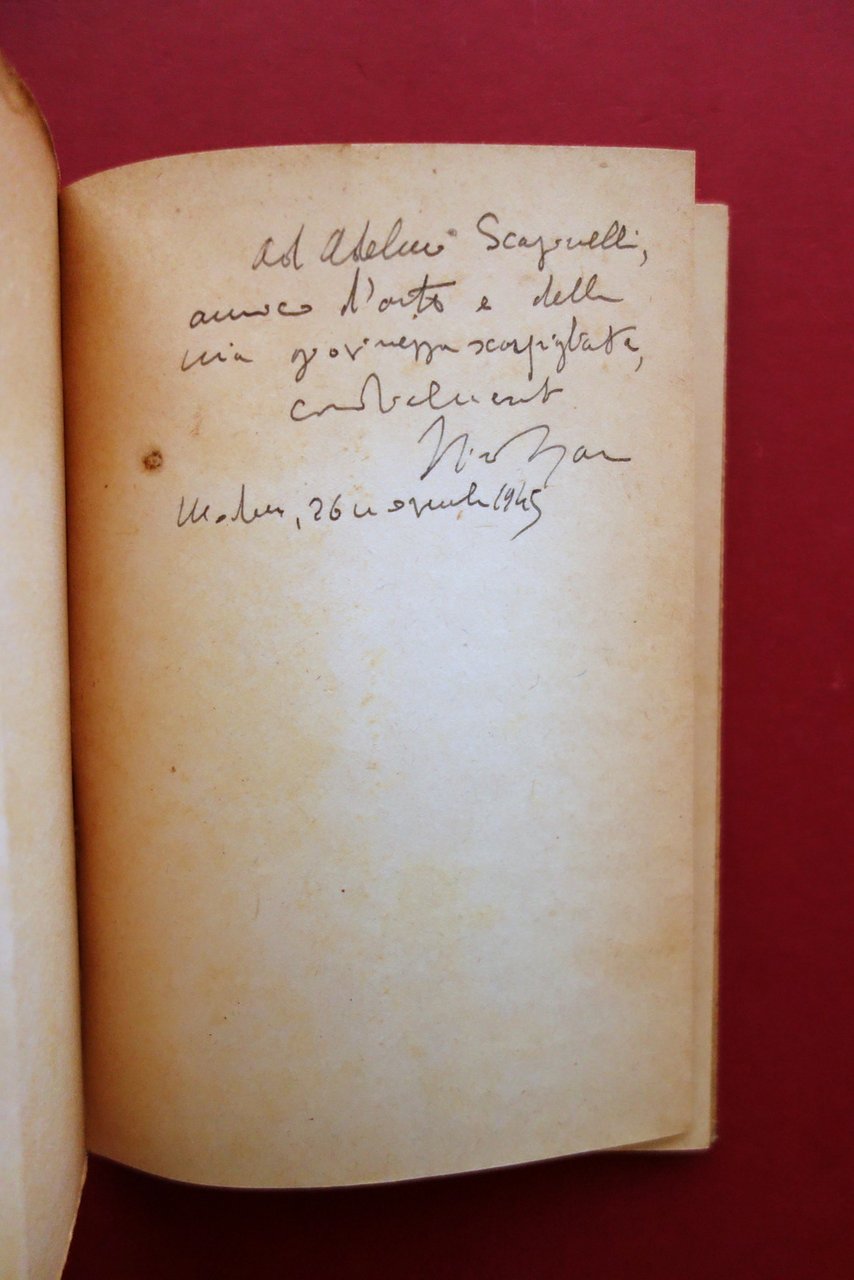 Ad Adelmo Scaglielli,
amico d'arte e della
mia giovinezza scapigliata,
cordialmente
26 novembre 1945